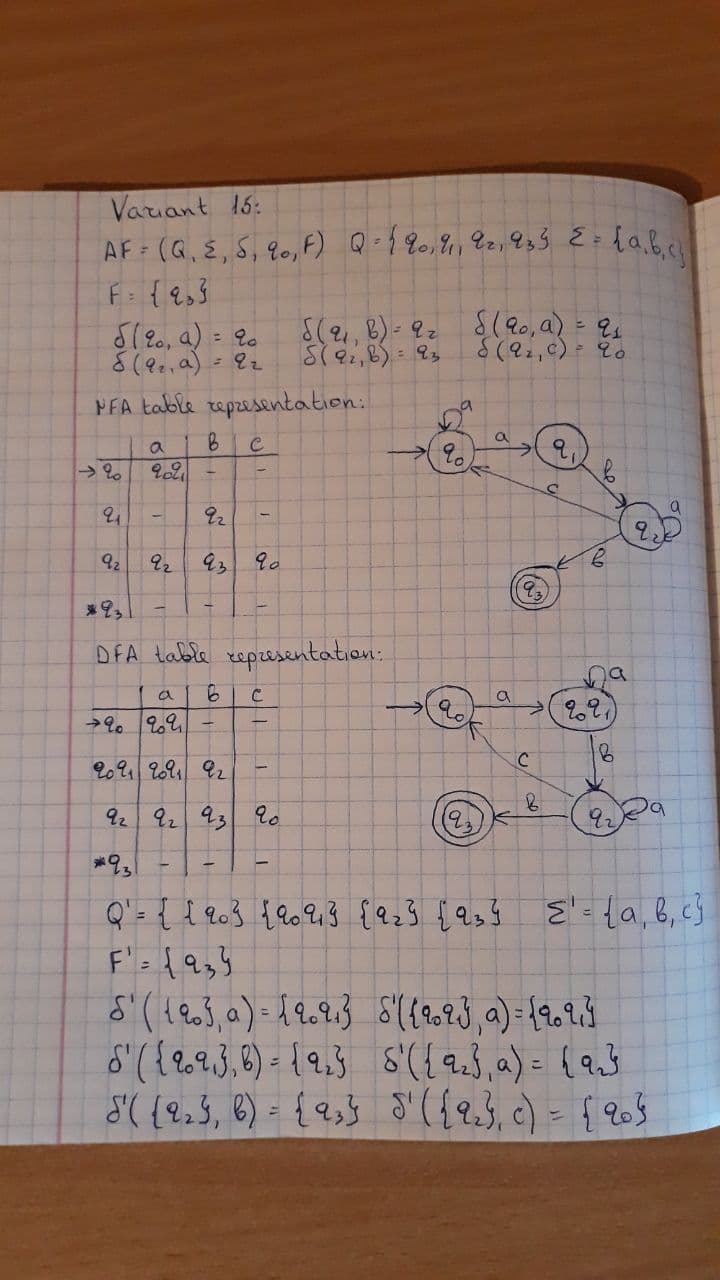 Variant 15:
AF = (Q, Σ, δ, q₀, F) Q = {q₀, q₁, q₂, q₃} Σ = {a, b, c}
F = {q₃}
δ(q₀, a) = q₀ δ(q₁, b) = q₂ δ(q₀, a) = q₁
δ(q₂, a) = q₂ δ(q₂, b) = q₃ δ(q₂, c) = q₀
NFA table representation:
a b c
→q₀ q₀q₁ - -
q₁ - q₂ -
q₂ q₂ q₃ q₀
*q₃ - - -
a
q₀ a q₁
c b
q₂ a
b
q₃
DFA table representation:
a b c
→q₀ q₀q₁ - -
q₀q₁ q₀q₁ q₂ -
q₂ q₂ q₃ q₀
*q₃ - - -
a
q₀ a q₀q₁
c b
q₃ b q₂ a
Q' = { {q₀} {q₀q₁} {q₂} {q₃} Σ' = {a, b, c}
F' = {q₃}
δ'({q₀}, a) = {q₀q₁} δ'({q₀q₁}, a) = {q₀q₁}
δ'({q₀q₁}, b) = {q₂} δ'({q₂}, a) = {q₂}
δ'({q₂}, b) = {q₃} δ'({q₂}, c) = {q₀}